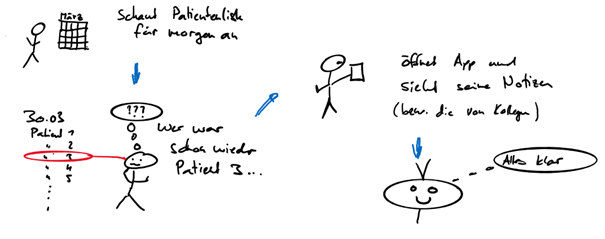 März
Schaut Patientenliste
für morgen an
30.03
Patient 1
" 2
" 3
" 4
" 5
???
Wer war
schon wieder
Patient 3...
öffnet App und
sieht seine Notizen
(bzw. die von Kollegen)
Alles klar